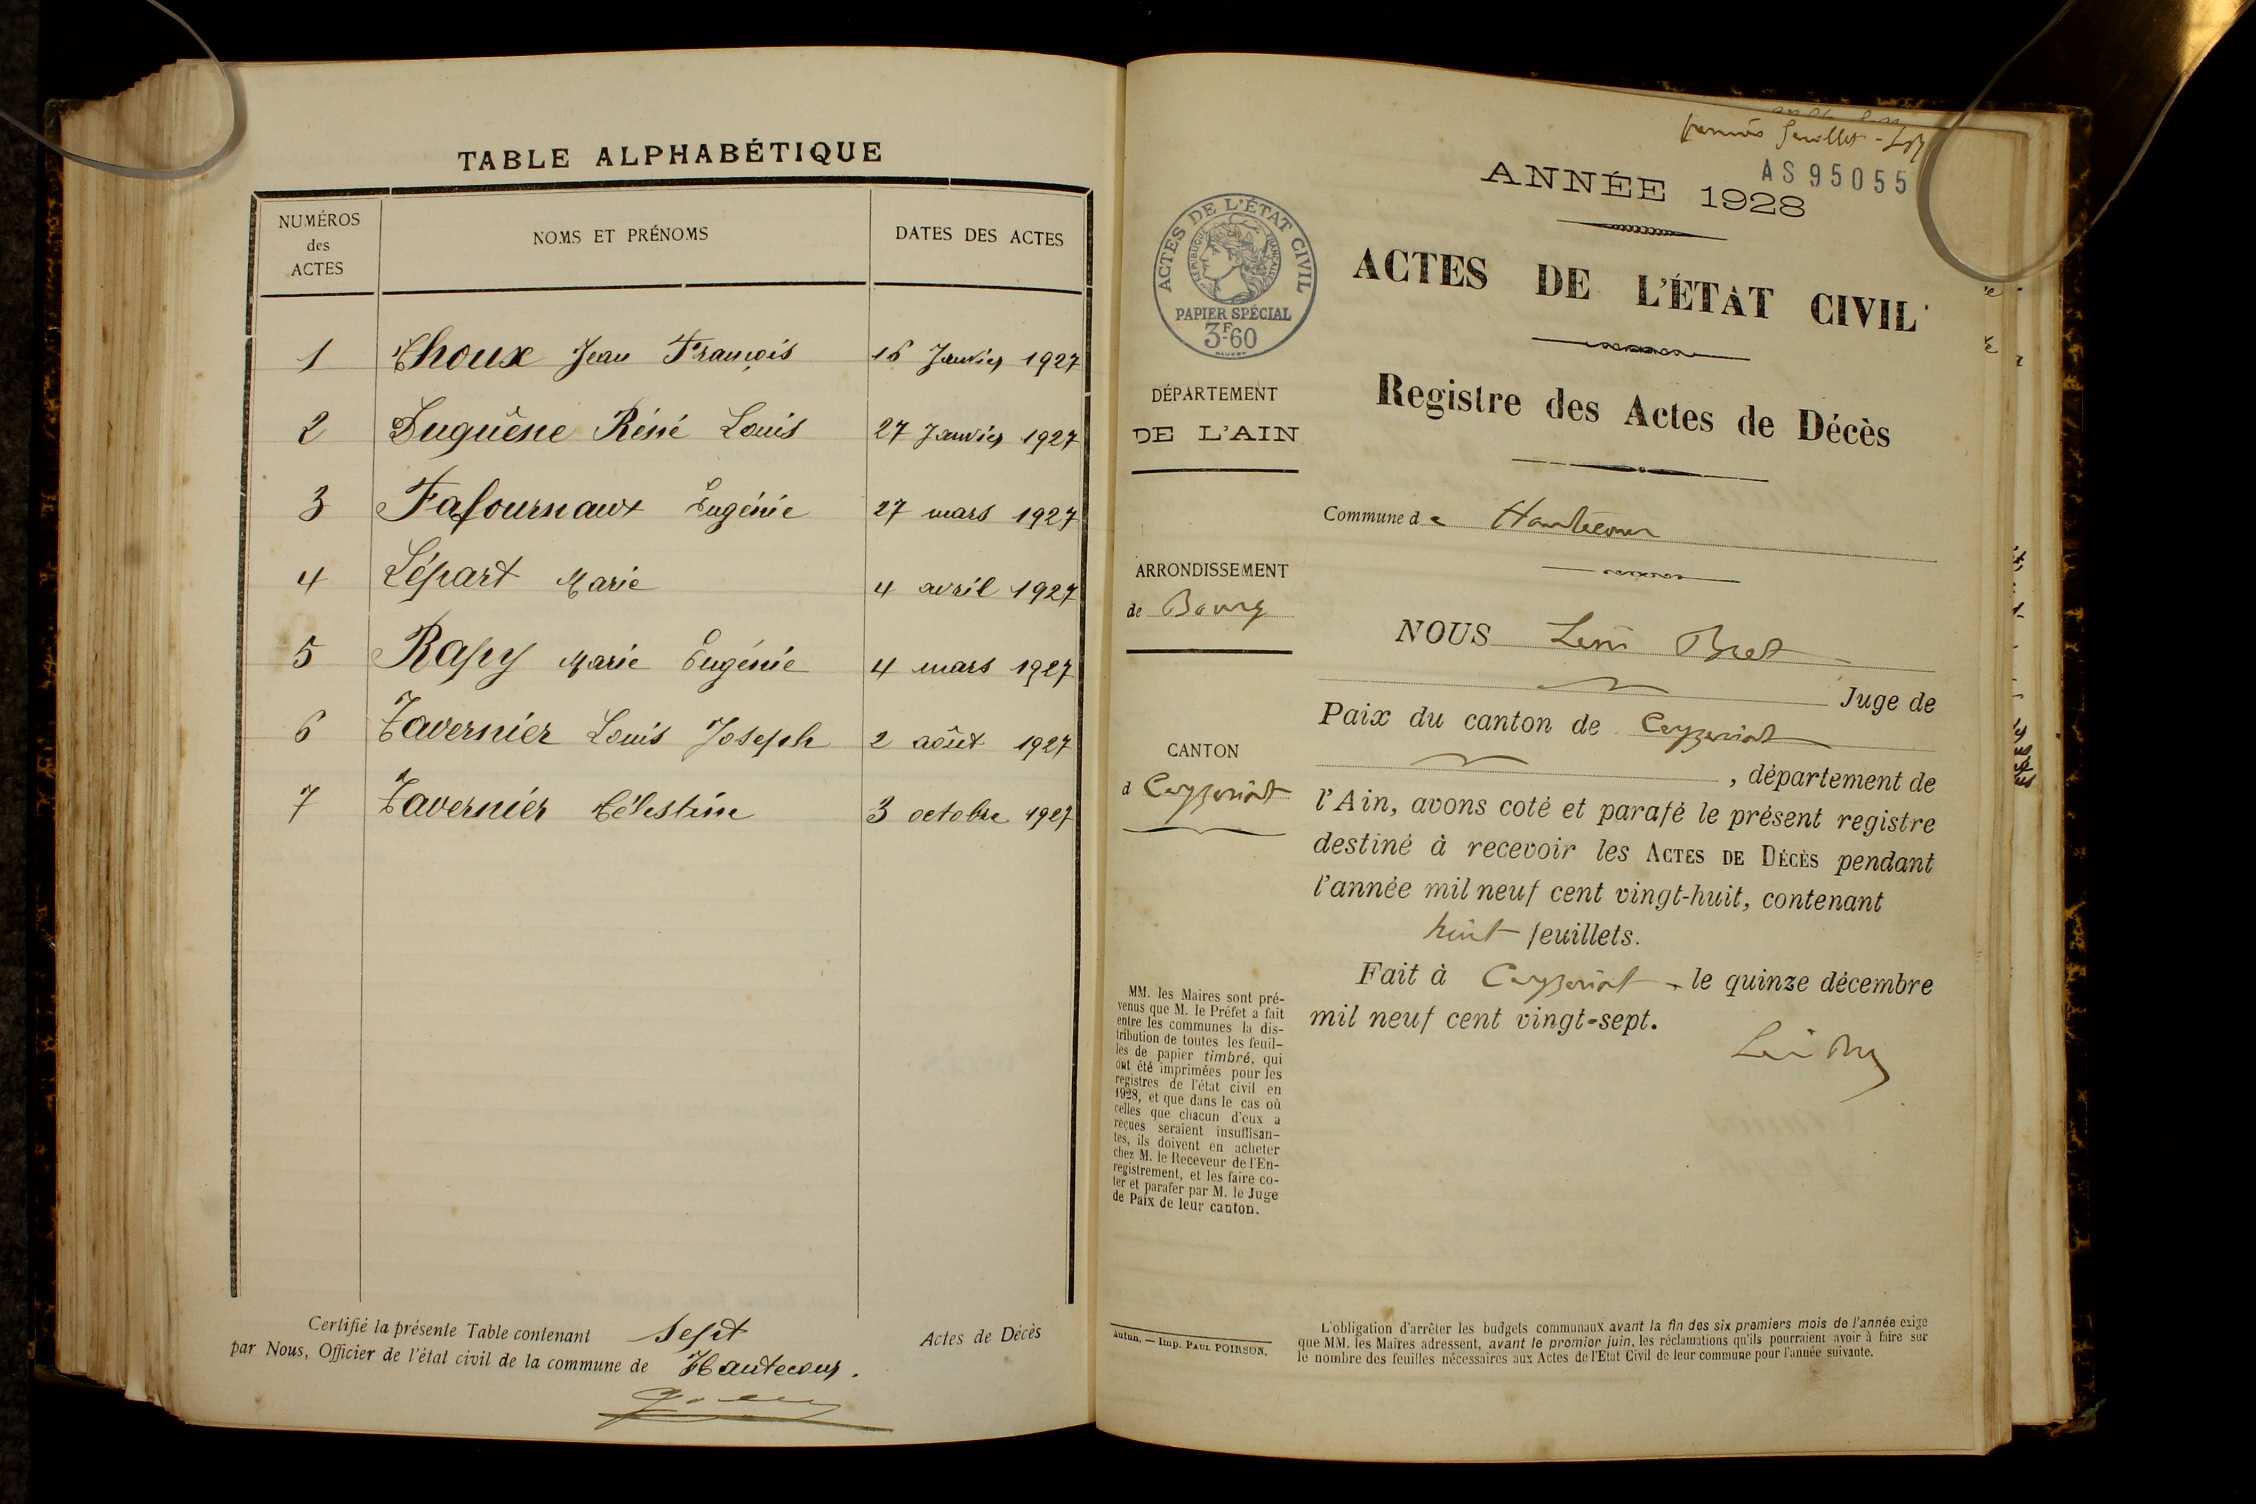 TABLE ALPHABÉTIQUE
NUMÉROS des ACTES NOMS ET PRÉNOMS DATES DES ACTES
1 Choux Jean François 16 Janvier 1927
2 Duguêne Réné Louis 27 Janvier 1927
3 Fafournoux Eugénie 27 mars 1927
4 Lépart Marie 4 avril 1927
5 Rapy Marie Eugénie 4 mars 1927
6 Tavernier Louis Joseph 2 août 1927
7 Tavernier Célestine 3 octobre 1927
Certifié la présente Table contenant sept Actes de Décès
par Nous, Officier de l'état civil de la commune de Hautecour.
AS 95055
ANNÉE 1928
ACTES DE L'ÉTAT CIVIL
RÉPUBLIQUE FRANÇAISE
PAPIER SPÉCIAL
3F60
ACTES DE L'ÉTAT CIVIL
Registre des Actes de Décès
DÉPARTEMENT
DE L'AIN
ARRONDISSEMENT
de Bourg
CANTON
d Ceyzeriat
MM. les Maires sont pré-
venus que M. le Préfet a fait
entre les communes la dis-
tribution de toutes les feuil-
les de papier timbré, qui
ont été imprimées pour les
registres de l'état civil en
1928, et que dans le cas où
celles que chacun d'eux a
reçues seraient insuffisan-
tes, ils doivent en acheter
chez M. le Receveur de l'En-
registrement, et les faire co-
ter et parafer par M. le Juge
de Paix de leur canton.
Autun. — Imp. PAUL POIRSON.
Commune de Hautecour
NOUS Bret
Juge de
Paix du canton de Ceyzeriat
, département de
l'Ain, avons coté et parafé le présent registre
destiné à recevoir les ACTES DE DÉCÈS pendant
l'année mil neuf cent vingt-huit, contenant
huit feuillets.
Fait à Ceyzeriat, le quinze décembre
mil neuf cent vingt-sept.
L'obligation d'arrêter les budgets communaux avant la fin des six premiers mois de l'année exige
que MM. les Maires adressent, avant le premier juin, les réclamations qu'ils pourraient avoir à faire sur
le nombre des feuilles nécessaires aux Actes de l'Etat Civil de leur commune pour l'année suivante.